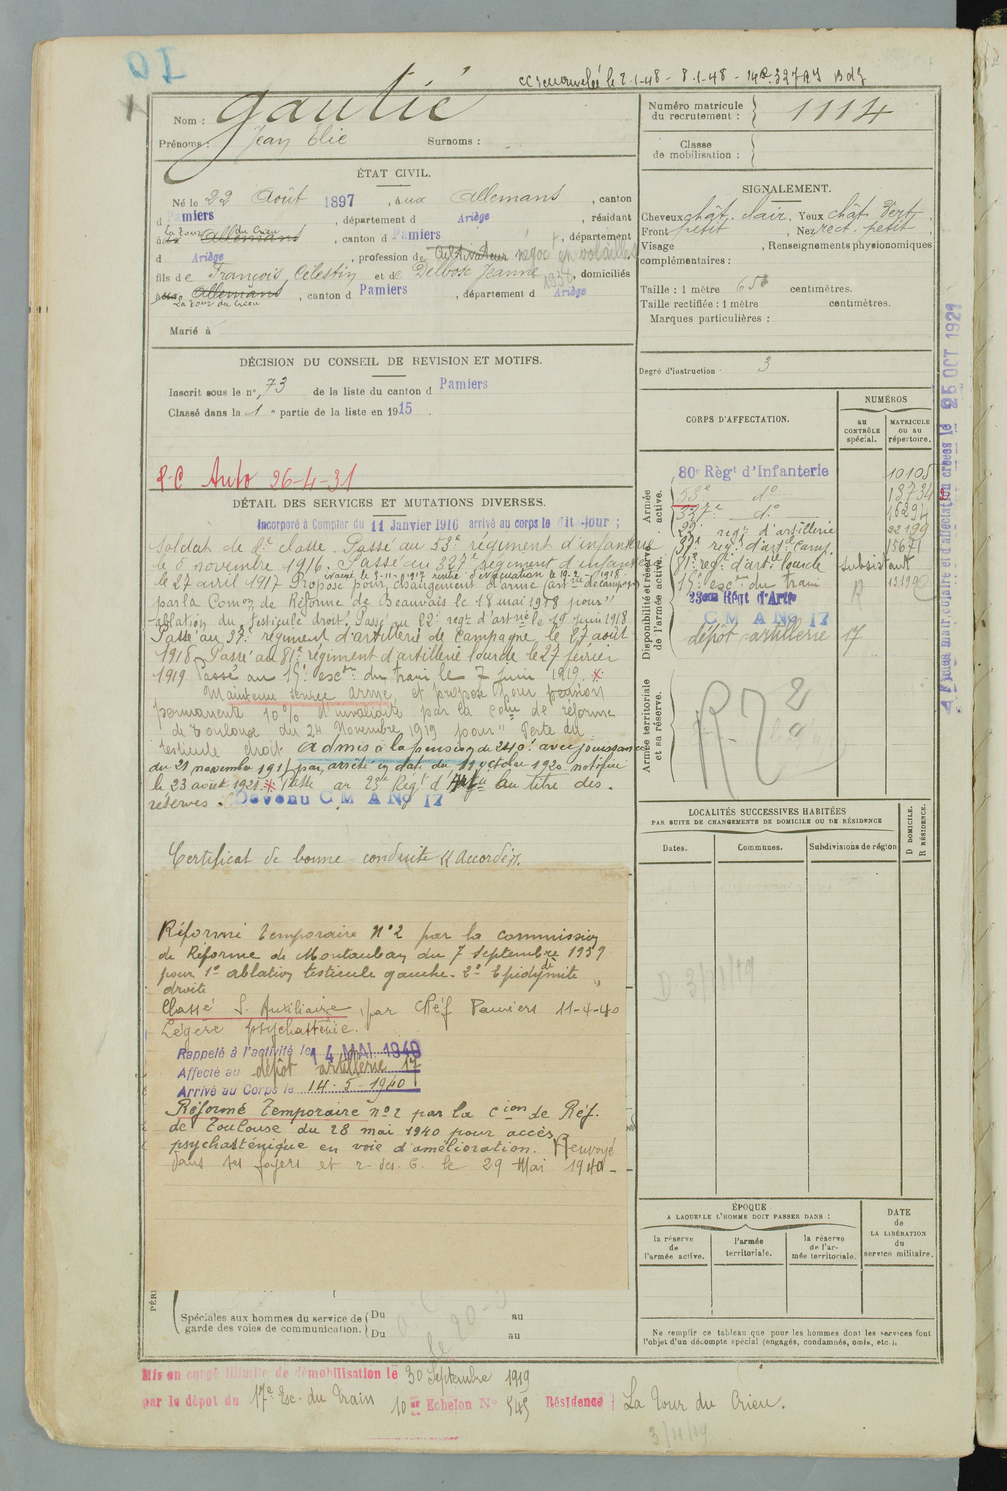 CC renouvelée le 2.1.48 - 8.1.48
Nom : Gautié
Prénoms : Jean Elie Surnoms :
Numéro matricule du recrutement : 1114
Classe de mobilisation :
ÉTAT CIVIL.
Né le 22 Août 1897, aux Allemans, canton
d Pamiers, département d Ariège, résidant
La Tour du Crieu
aux Allemans, canton d Pamiers, département
d Ariège, profession de Cultivateur négoct en volailles
fils de François Célestin et de Delbosc Jeanne, domiciliés
aux Allemans, canton d Pamiers, département d Ariège
La Tour du Crieu
Marié à
SIGNALEMENT.
Cheveux chât. clair. Yeux chât. vert.
Front petit, Nez rect. petit.
Visage , Renseignements physionomiques
complémentaires :
Taille : 1 mètre 65 centimètres.
Taille rectifiée : 1 mètre centimètres.
Marques particulières :
Degré d'instruction : 3
DÉCISION DU CONSEIL DE REVISION ET MOTIFS.
Inscrit sous le n° 73 de la liste du canton d Pamiers
Classé dans la 1e partie de la liste en 1915.
P.C Auto 26-4-31
DÉTAIL DES SERVICES ET MUTATIONS DIVERSES.
Incorporé à Compter du 11 Janvier 1916 arrivé au corps le dit-jour ;
Soldat de 2e classe. Passé au 53e régiment d'infanterie
le 6 novembre 1916. Passé au 327e régiment d'infanterie
le 27 avril 1917 Proposé pour changement d'arme (artie de campagne)
par la Comon de Réforme de Beauvais le 18 mai 1918 pour "
ablation du testicule droit. Passé au 22e régt d'artnie le 19 juin 1918
Passé au 37e régiment d'artillerie de campagne le 27 août
1918. Passé au 81e régiment d'artillerie lourde le 27 février
1919 Passé au 17e escon du train le 7 juin 1919. *
Maintenu service armé, et proposé pour pension
permanente 10% d'invalidité par la Com de réforme
de Toulouse du 24 Novembre 1919 pour " Perte du
testicule droit. Admis à la pension de 240f avec jouissance
du 21 novembre 1919 par arrêté en date du 11 octobre 1920 notifiée
le 23 août 1921. * Passé au 23e Régt d'Artie au titre des
réserves. Devenu C M A No 17
Certificat de bonne conduite "Accordé".
CORPS D'AFFECTATION.
NUMÉROS
AU CONTRÔLE spécial.
MATRICULE OU AU répertoire.
Armée active.
80e Régt d'Infanterie 10105
53e do 13734
327e do 16294
22e régt d'artillerie 22199
37e régt d'art. camp. 15671
Disponibilité et réserve de l'armée active.
81e régt d'art. lourde subsistant
17e escon du train
23eme Régt d'Artie
C M A No 17
dépôt artillerie 17
Armée territoriale et sa réserve.
R
LOCALITÉS SUCCESSIVES HABITÉES
PAR SUITE DE CHANGEMENTS DE DOMICILE OU DE RÉSIDENCE
Dates. Communes. Subdivisions de région
D DOMICILE. R RÉSIDENCE.
Réformé temporaire N°2 par la commission
de Réforme de Montauban du 7 septembre 1939
pour 1° ablation testicule gauche - 2° Epididymite
droite "
Classé S. Auxiliaire par CRéf Pamiers 11-4-40
Légère psychasténie.
Rappelé à l'activité le 14 MAI 1940
Affecté au dépôt artillerie 17
Arrivé au Corps le 14-5-1940
Réformé Temporaire n°2 par la Cion de Réf.
de Toulouse du 28 mai 1940 pour accès
psychasténique en voie d'amélioration. Renvoyé
dans ses foyers et r. des. C. le 29 Mai 1940 -
ÉPOQUE
A LAQUELLE L'HOMME DOIT PASSER DANS :
la réserve de l'armée active.
l'armée territoriale.
la réserve de l'armée territoriale.
DATE de LA LIBÉRATION du service militaire.
Spéciales aux hommes du service de garde des voies de communication.
Du au
Du au
Ne remplir ce tableau que pour les hommes dont les services font
l'objet d'un décompte spécial (engagés, condamnés, omis, etc.).
Mis en congé illimité de démobilisation le 30 Septembre 1919
par le dépôt du 17e Esc. du Train 10er Echelon No 545 Résidence La Tour du Crieu.